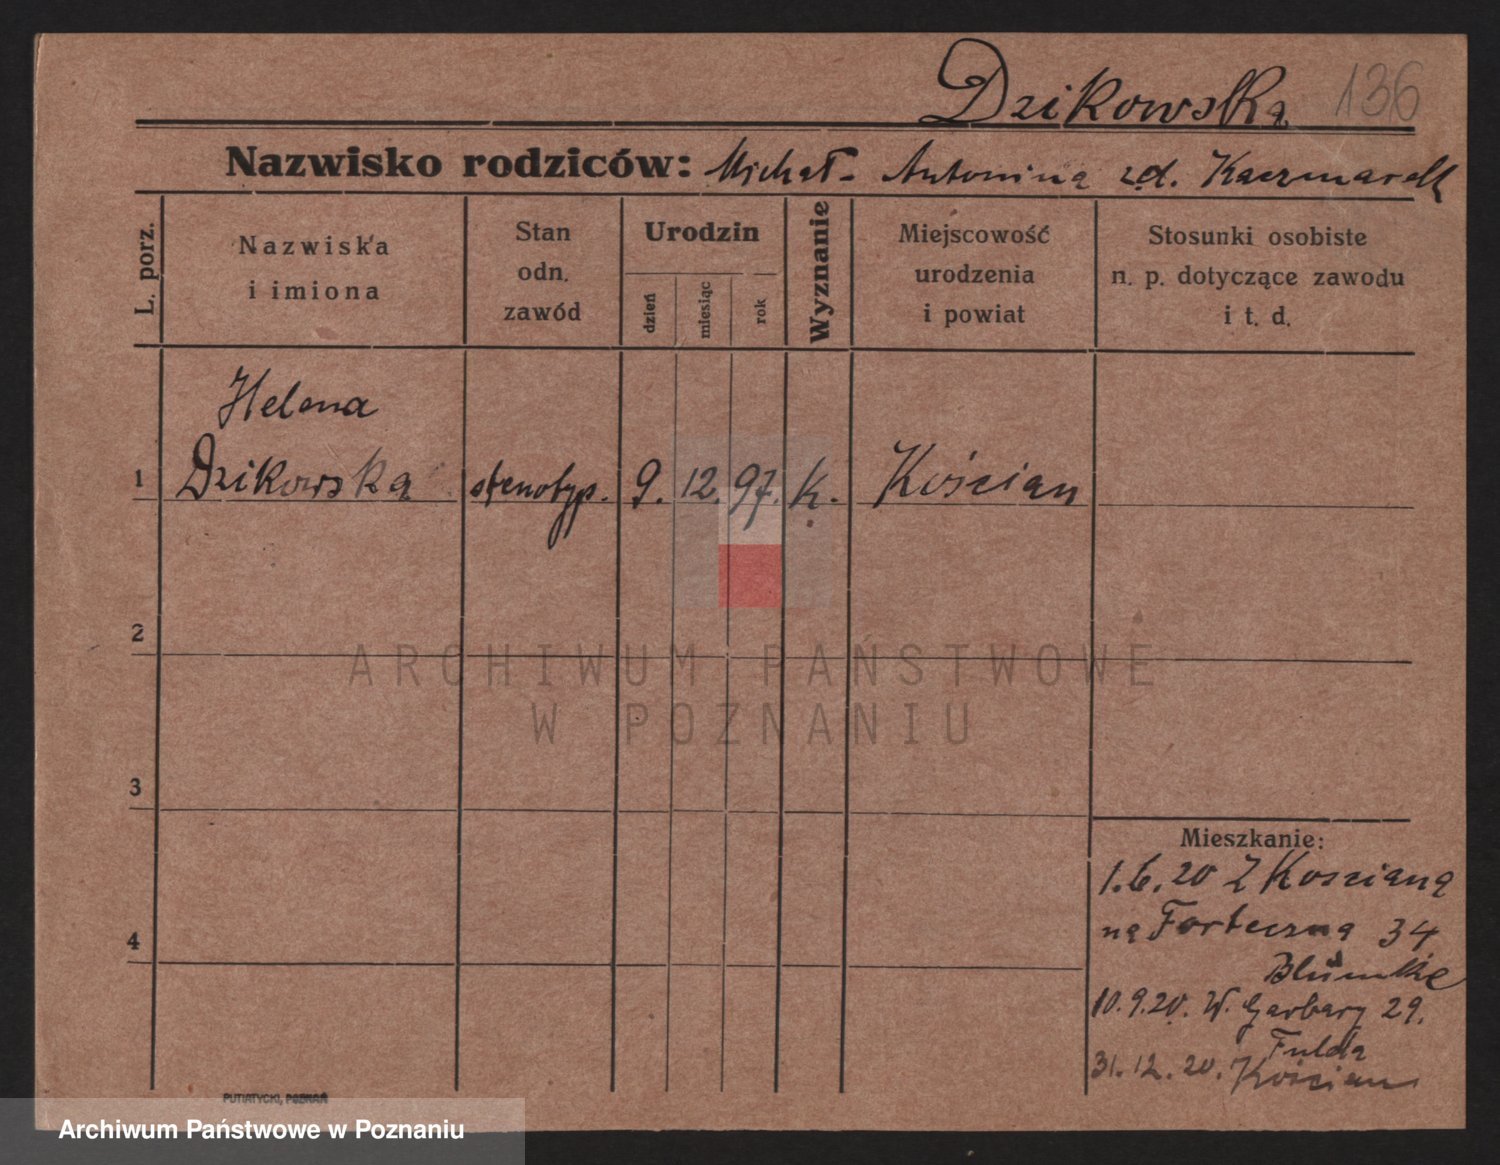 Dzikowska 136
Nazwisko rodziców: Michał - Antonina zd. Kaczmarek
L. porz.
Nazwiska
i imiona
Stan
odn.
zawód
Urodzin
dzień
miesiąc
rok
Wyznanie
Miejscowość
urodzenia
i powiat
Stosunki osobiste
n. p. dotyczące zawodu
i t. d.
Helena
1 Dzikowska stenotyp. 9. 12. 97. K. Kościan
2
ARCHIWUM PAŃSTWOWE
W POZNANIU
3
Mieszkanie:
1.6.20 Z Kościana
na Forteczna 34
4
Blümke
10.9.20. W. Garbary 29.
Fulda
31.12.20. Kościan
PUTIATYCKI, POZNAŃ
Archiwum Państwowe w Poznaniu